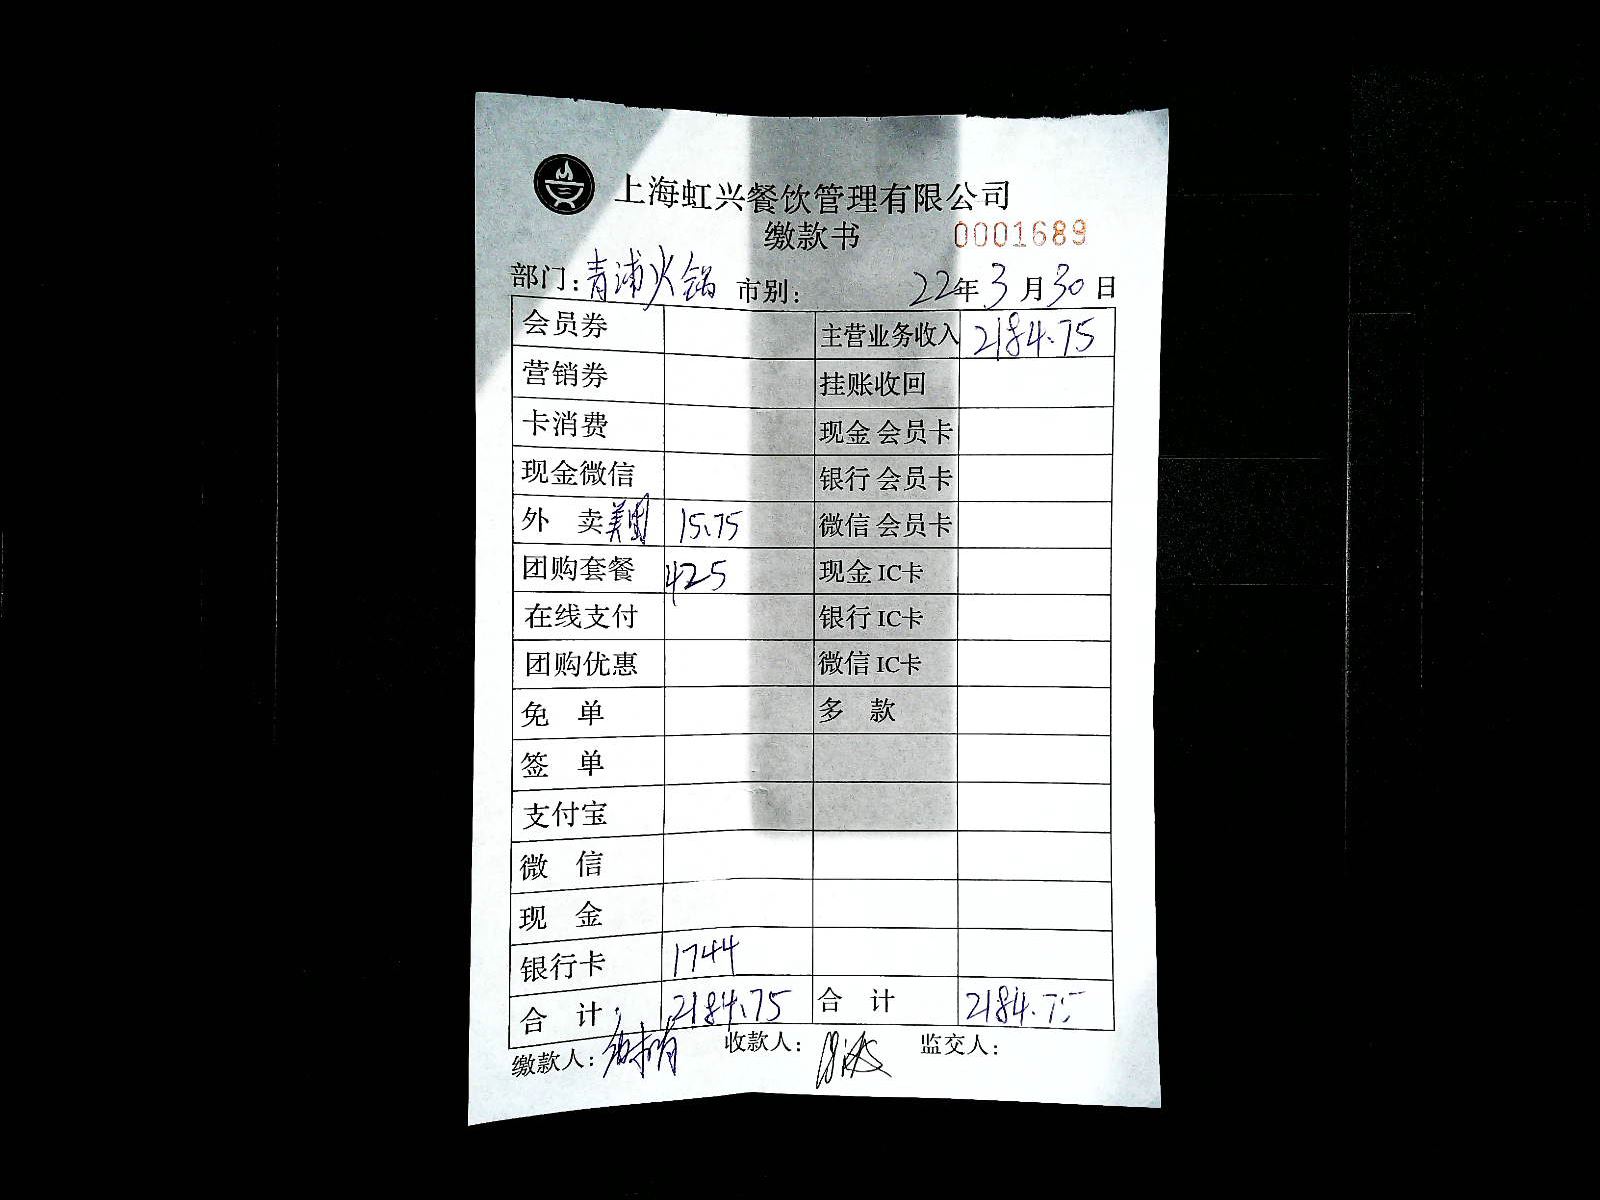 上海虹兴餐饮管理有限公司
缴款书 0001689
部门：青浦火锅 市别： 22年3月30日
会员券 主营业务收入 2184.75
营销券 挂账收回
卡消费 现金会员卡
现金微信 银行会员卡
外 卖美团 15.75 微信会员卡
团购套餐 425 现金IC卡
在线支付 银行IC卡
团购优惠 微信IC卡
免 单 多 款
签 单
支付宝
微 信
现 金
银行卡 1744
合 计 2184.75 合 计 2184.75
缴款人： 收款人： 监交人：